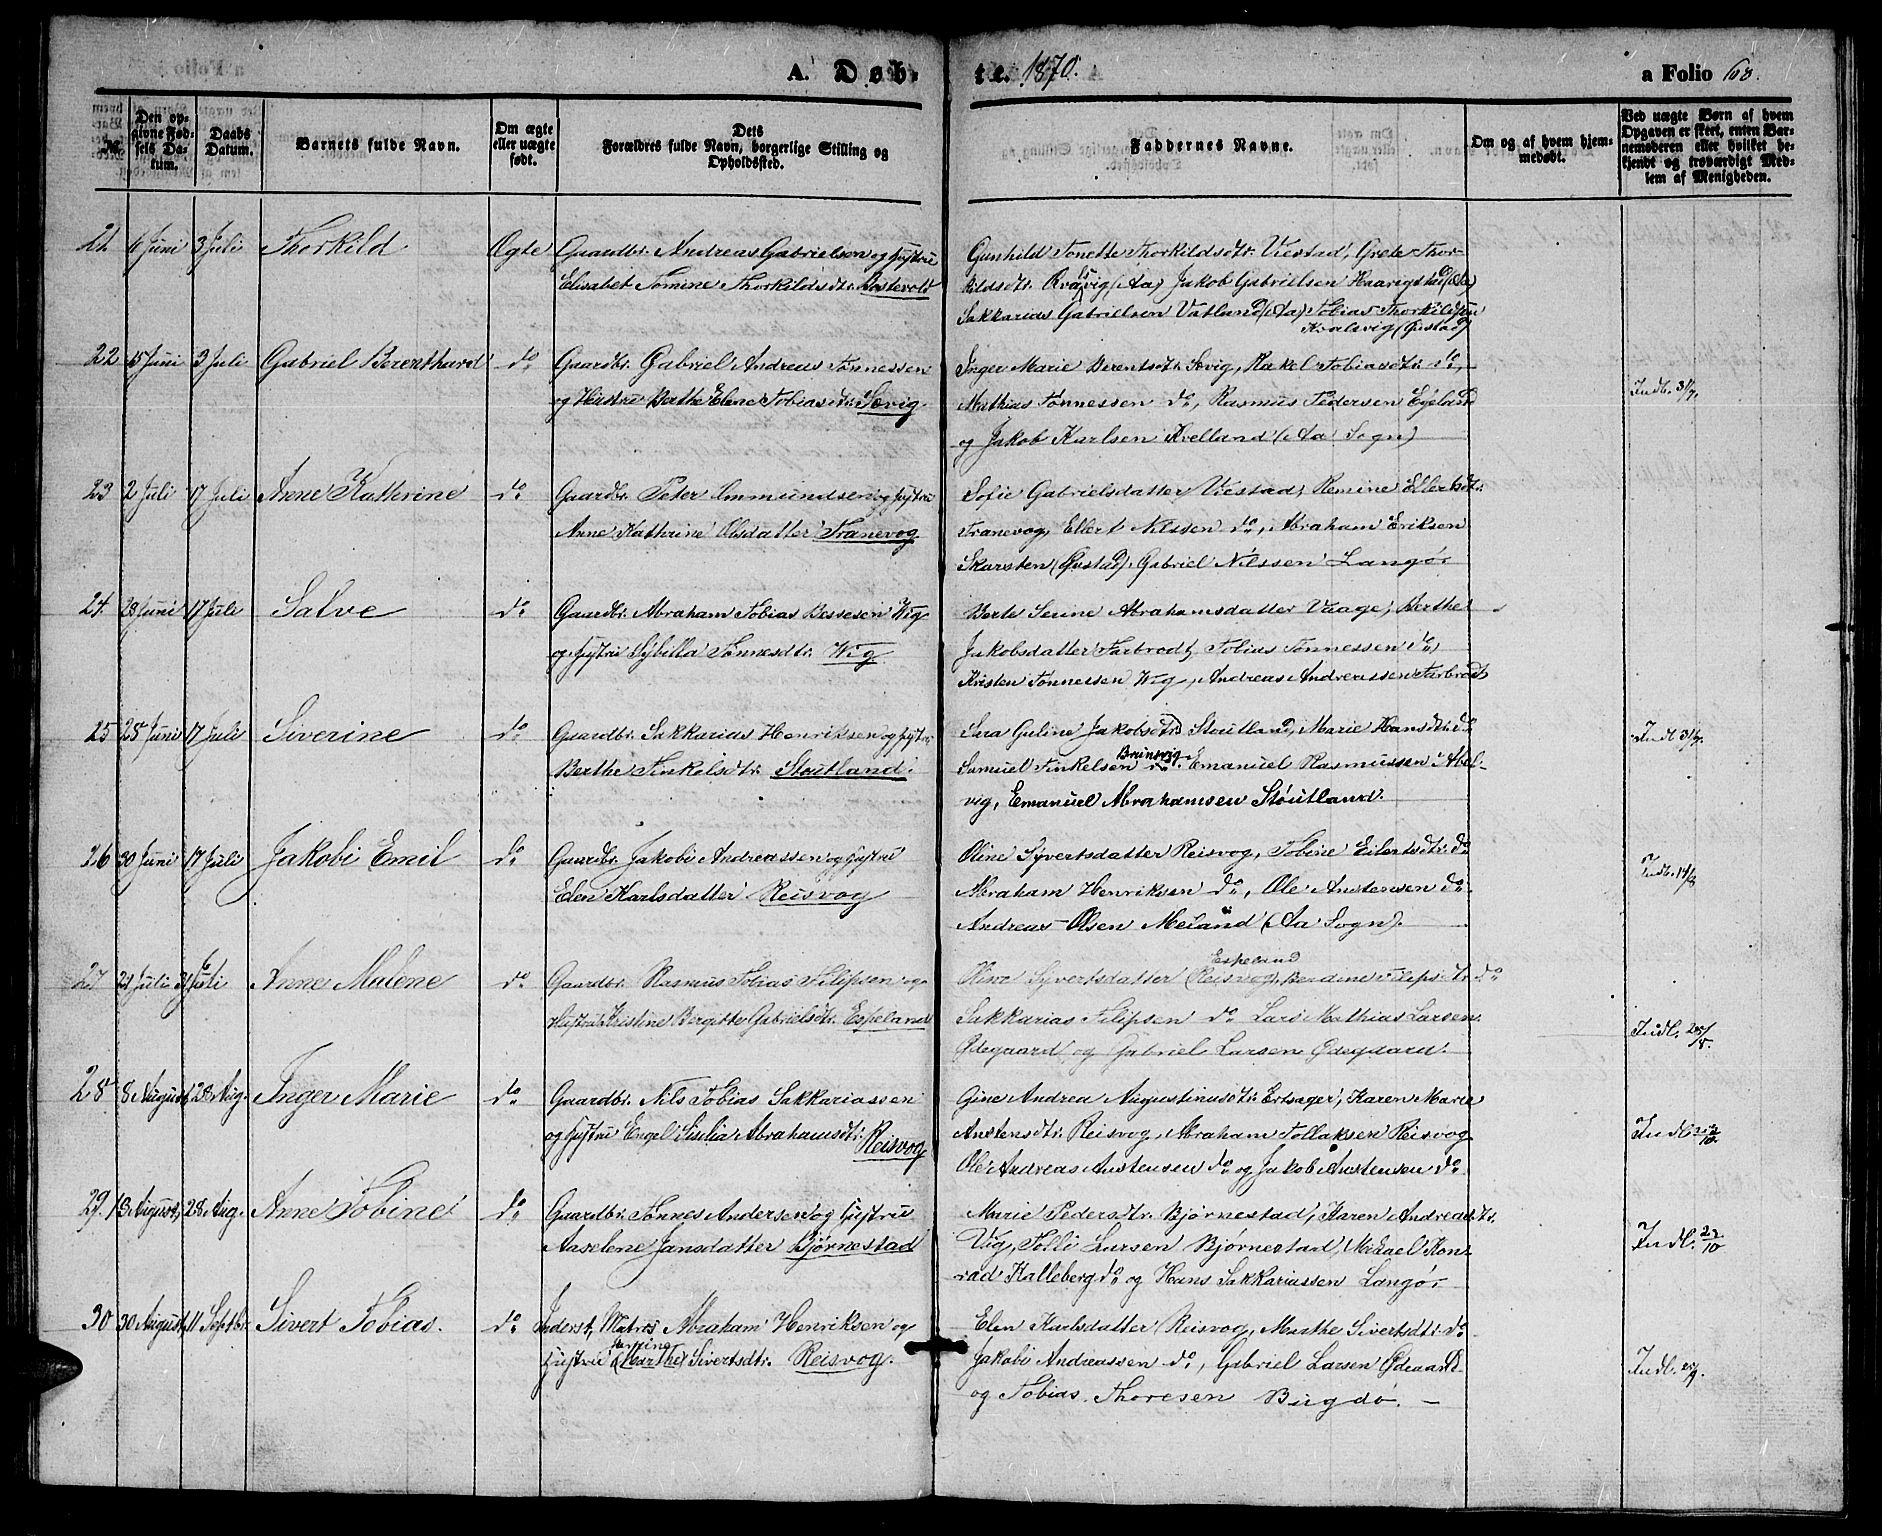 A. Døb-
te. 1870.
a Folio 68.
№
Den op-
givne Fød-
sels Da-
tum.
Daabs
Datum.
Barnets fulde Navn.
Om ægte
eller uægte
født.
Dets
Forældres fulde Navn, borgerlige Stilling og
Opholdssted.
Faddernes Navne.
Om og af hvem hjem-
medøbt.
Ved uægte Børn af hvem
Opgaven er skeet, enten Bar-
nemoderen eller hvilket be-
kjendt og troværdigt Med-
lem af Menigheden.
21 6 Juni 3 Juli Thorkild Ægte Gaardbr. Andreas Gabrielsen og Hustru
Elisabet Tomine Thorkildsdtr.
Gunhild Tonette Thorkildsdtr. Viestad, Grete Thor-
kildsdtr. (Aa) Jakob Gabrielsen Haarigstad (Aa)
Sakkarias Gabrielsen Vatland (Aa) Tobias Thorkildsen
22 15 Juni 3 Juli Gabriel Berenthard do. Gaardbr. Gabriel Andreas Tønnessen
og Hustru Berthe Elene Tobiasdtr. Sævig.
Inger Marie Berentsdtr. Sævig, Rakel Tobiasdtr. do,
Mathias Tønnessen do, Rasmus Pedersen Egeland
og Jakob Karlsen Kvelland (Aa Sogn)
Indb. 31/7.
23 2 Juli 17 Juli Anne Kathrine do. Gaardbr. Peter Ommundsen og Hustru
Anne Kathrine Olsdatter Tranevog
Sofie Gabrielsdatter Viestad, Remine Ellertsdtr.
Tranevog, Ellert Nilssen do, Abraham Eriksen
Skarsten (Østad), Gabriel Nilssen Langø.
24. 28 Juni 17 Juli Salve do. Gaardbr. Abraham Tobias Bessesen Wig
og Hustru Sybilla Tønnesdtr. Wig
Berte Serine Abrahamsdatter Vaage, Berthe
Jakobsdatter Farbrodt, Tobias Tønnessen do,
Kristen Tønnessen Wig, Andreas Andreassen Farbrodt
25 25 Juni 17 Juli Siverine do. Gaardbr. Sakkarias Henriksen og Hustru
Berthe Tinkelsdtr. Støutland.
Sara Guline Jakobsdtr. Støutland, Marie Hansdtr. do
Samuel Tinkelsen do. Brunsvig. Emanuel Rasmussen Abel-
vig, Emanuel Abrahamsen Støutland.
Indl. 31/7.
26 30 Juni 17 Juli Jakobi Emil do. Gaardbr. Jakobi Andreassen og Hustru
Elen Karlsdatter Reisvog
Oline Syvertsdatter Reisvog, Tobine Eilertsdtr. do
Abraham Henriksen do, Ole Anstensen do.
Andreas Olsen Meland (Aa Sogn).
Indb. 14/8
27 21 Juli 31 Juli Anne Malene do. Gaardbr. Rasmus Tobias Filipsen og
Hustru Kristine Bergitte Gabrielsdtr. Espeland
Syvertsdatter (Reisvog) Espeland, Berdine Filipsdtr. do
Sakkarias Filipsen do. Lars Mathias Larsen
Ødegaard og Gabriel Larsen Ødegaard.
Indl. 28/8.
28. 8 August 28 Aug. Inger Marie do. Gaardbr. Nils Tobias Sakkariassen
og Hustru Engel Sisilia Abrahamsdtr. Reisvog
Gine Andrea Augustinusdtr. Ertsager, Karen Marie
Anstensdtr. Reisvog, Abraham Tollaksen Reisvog
Ole Andreas Anstensen do og Jakob Anstensen do.
Indl. 22/10.
29. 13 August, 28 Aug. Anne Tobine do. Gaardbr. Tønnes Andersen og Hustru
Aaselene Jansdatter Bjørnestad
Marie Pedersdtr. Bjørnestad, Karen Andreasdtr.
Vig, Tolli Larsen Bjørnestad, Mikael Kon-
rad Kalleberg do og Hans Sakkariassen Langø.
Indl. 22/10
30 30 August 11 Septbr. Sivert Tobias. do. Inderst, Matros Abraham Henriksen og
Hustru (Marthe) Serine Sivertsdtr. Reisvog.
Elen Karlsdatter Reisvog, Marthe Sivertsdtr. do
Jakobi Andreassen do, Gabriel Larsen Ødegaard
og Tobias Thoresen Bugdø. —
Indl.